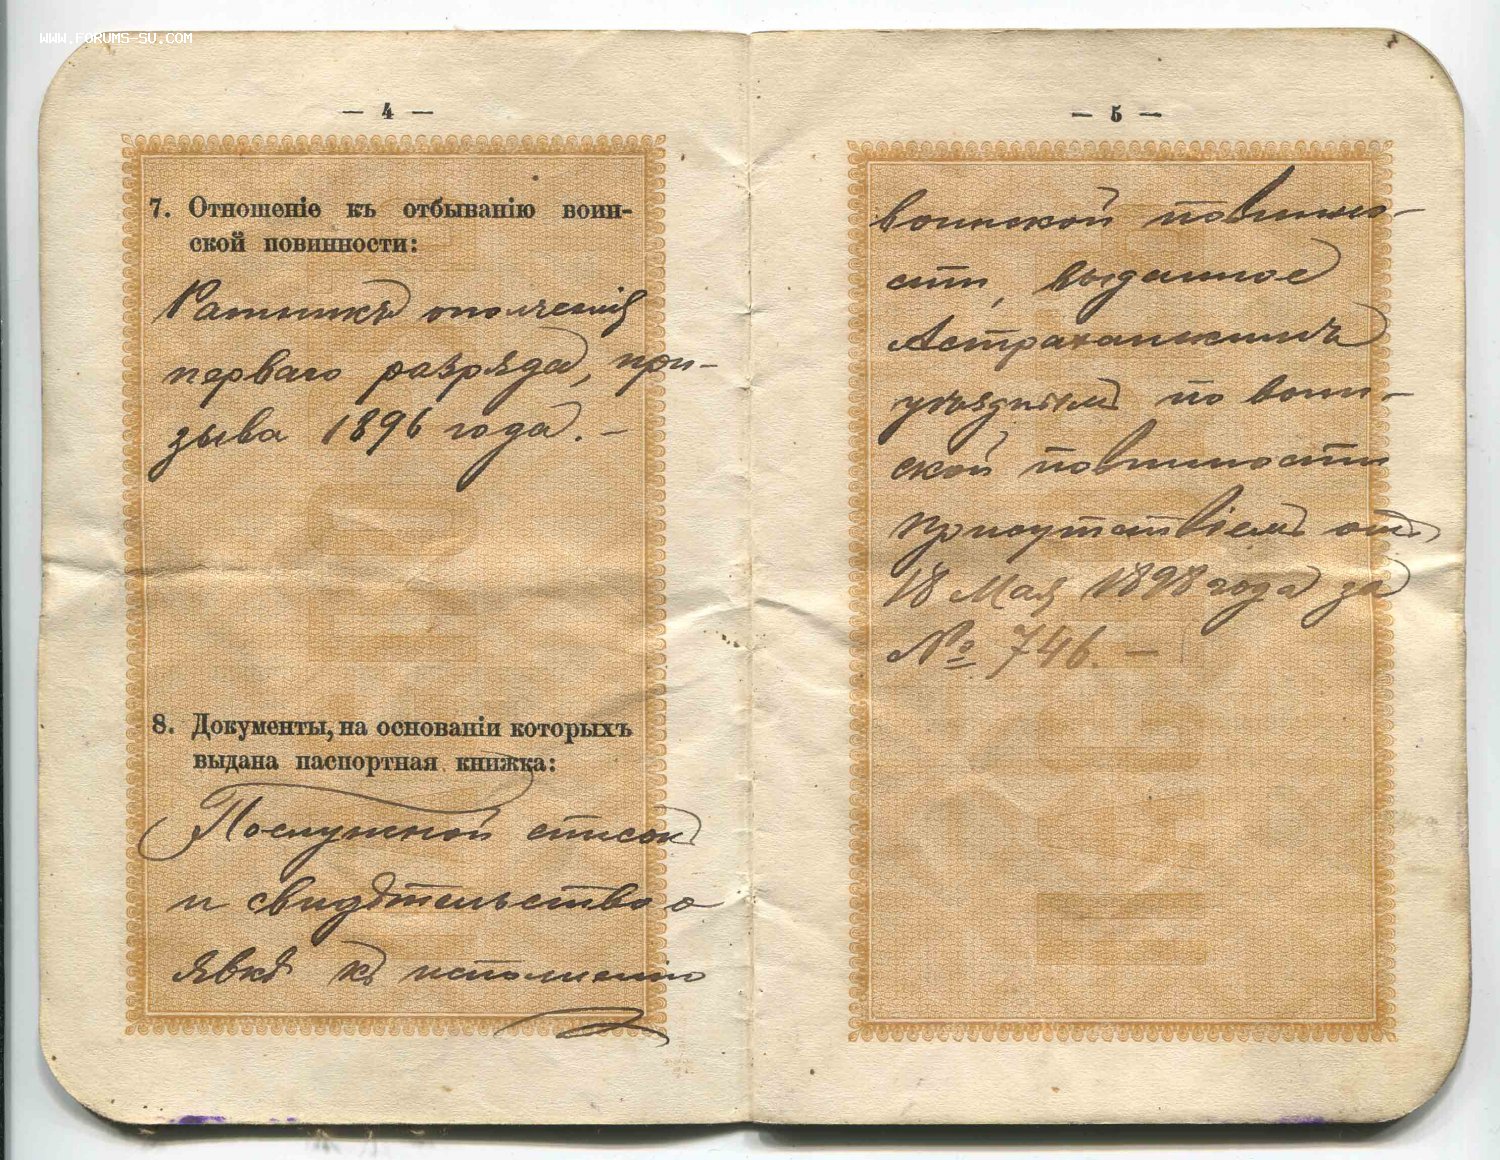 WWW.FORUMS-SU.COM
— 4 —
7. Отношеніе къ отбыванію воин-
ской повинности:
Ратникъ ополченія
перваго разряда, при-
зыва 1896 года. –
8. Документы, на основаніи которыхъ
выдана паспортная книжка:
Послужной списокъ
и свидѣтельство о
явкѣ къ исполненію
— 5 —
воинской повинно-
сти, выданное
Астраханскимъ
уѣзднымъ по воин-
ской повинности
присутствіемъ отъ
18 Мая 1898 года за
№ 746. –